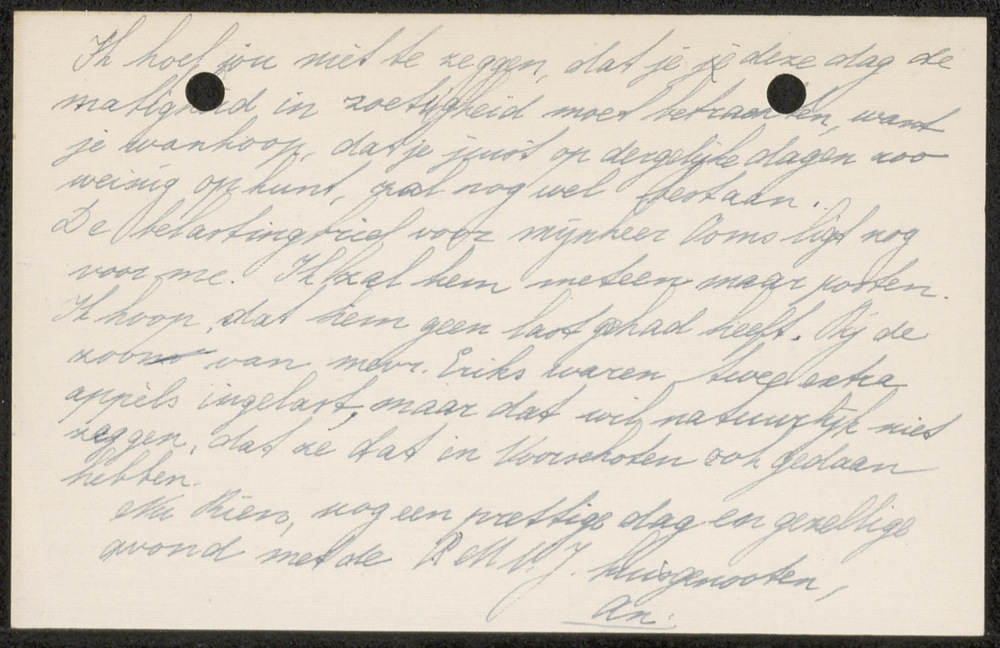 Ik hoef jou niet te zeggen, dat je je deze dag de
matigheid in zoetigheid moet betrachten, want
je wanhoop, dat je juist op dergelijke dagen zoo
weinig op kunt, zal nog wel bestaan.
De belastingbrief voor mijnheer Ooms ligt nog
voor me. Ik zal hem meteen maar posten.
Ik hoop, dat hem geen last gehad heeft. Bij de
van mevr. Eriks waren twee extra
appèls ingelast, maar dat wil natuurlijk niet
zeggen, dat ze dat in Voorschoten ook gedaan
hebben.
Nu Rien, nog een prettige dag en gezellige
avond met de huisgenooten,
An.